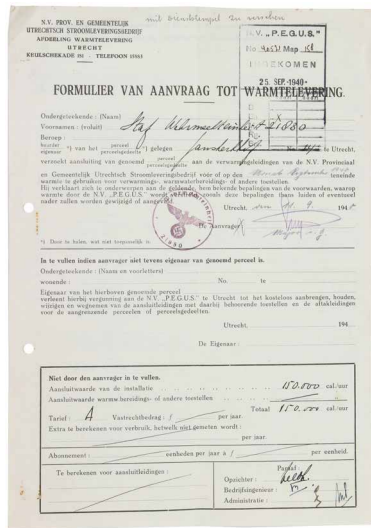 met dienststempel
N.V. PROV. EN GEMEENTELIJK
UTRECHTSCH STROOMLEVERINGSBEDRIJF
AFDEELING WARMTELEVERING
UTRECHT
KEULSCHEKADE - TELEFOON
N.V. „P.E.G.U.S."
No Map
INGEKOMEN
25 SEP. 1940
FORMULIER VAN AANVRAAG TOT WARMTELEVERING.
Ondergeteekende: (Naam)
Voornamen: (voluit) Stab 21850
Beroep:
huurder perceel
eigenaar *) van het perceelsgedeelte *) gelegen No. te Utrecht,
verzoekt aansluiting van genoemd perceel perceelsgedeelte aan de verwarmingsleidingen van de N.V. Provinciaal
en Gemeentelijk Utrechtsch Stroomleveringsbedrijf vóór of op den teneinde
warmte te gebruiken voor verwarmings-, warmwaterbereidings- of andere toestellen.
Hij verklaart zich te onderwerpen aan de geldende, hem bekende bepalingen van de voorwaarden, waarop
warmte door de N.V. „P.E.G.U.S." wordt geleverd, zooals deze bepalingen thans luiden of eventueel
nader zullen worden gewijzigd of aangevuld.
Utrecht, 9. 194
De Aanvrager:
21850
*) Door te halen, wat niet toepasselijk is.
In te vullen indien aanvrager niet tevens eigenaar van genoemd perceel is.
Ondergeteekende: (Naam en voorletters)
wonende: No. te
Eigenaar van het hierboven genoemde perceel
verleent hierbij vergunning aan de N.V. „P.E.G.U.S." te Utrecht tot het kosteloos aanbrengen, houden,
wijzigen en wegnemen van de aansluitleidingen met daarbij behoorende toestellen en de aftakleidingen
voor de aangrenzende perceelen of perceelsgedeelten.
Utrecht, 194
De Eigenaar:
Niet door den aanvrager in te vullen.
Aansluitwaarde van de installatie 150.000 cal./uur
Aansluitwaarde warmw.bereidings- of andere toestellen "
Totaal 150.000 cal./uur
Tarief: A Vastrechtbedrag: f per jaar.
Extra te berekenen voor verbruik, hetwelk niet gemeten wordt:
per jaar.
Abonnement: eenheden per jaar à f per eenheid.
Te berekenen voor aansluitleidingen:
Paraaf:
Opzichter:
Bedrijfsingenieur:
Administratie: